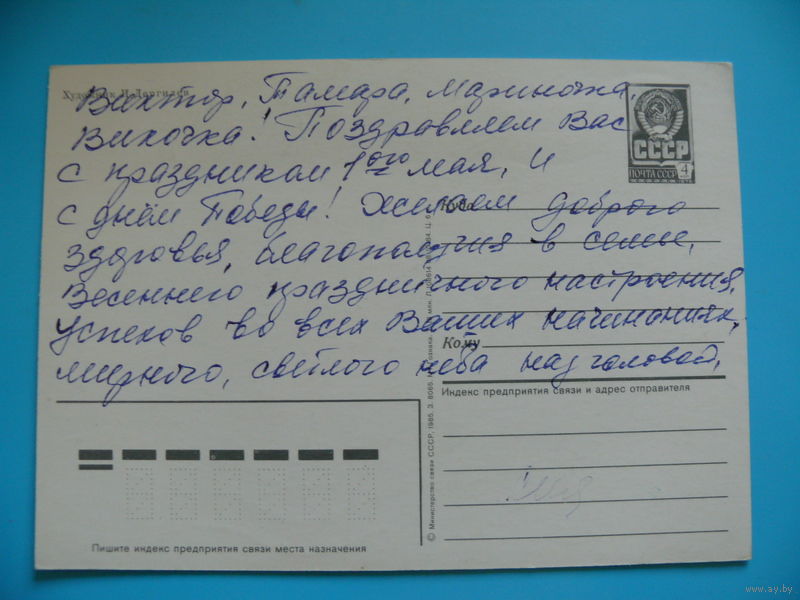 Художник И. Дергилев
Виктор, Тамара, Мариночка,
Викочка! Поздравляем Вас
с праздником 1ого мая, и
с днём Победы! Желаем доброго
здоровья, благополучия в семье,
весеннего праздничного настроения,
успехов во всех Ваших начинаниях,
мирного, светлого неба над головой.
СССР
ПОЧТА СССР 4
Куда
Кому
Индекс предприятия связи и адрес отправителя
© Министерство связи СССР, 1985. З. 8065.
Пишите индекс предприятия связи места назначения
www.ay.by